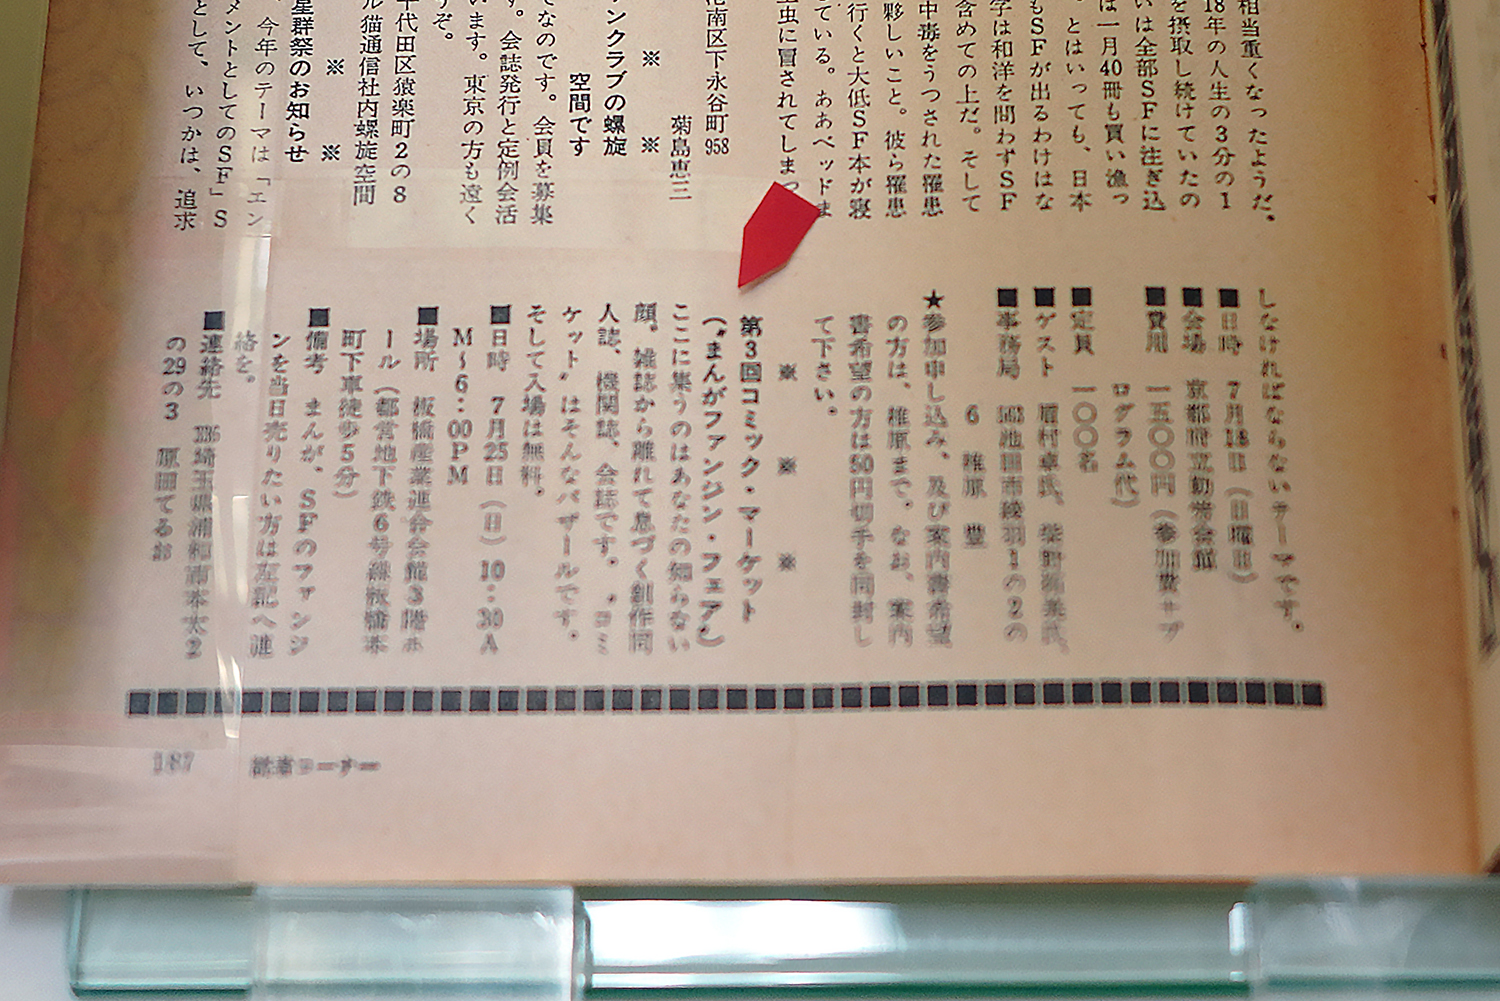 相当重くなったようだ。
18年の人生の3分の1
を摂取し続けていたの
いは全部SFに注ぎ込
は一月40冊も買い漁っ
。とはいっても、日本
もSFが出るわけはな
字は和洋を問わずSF
含めての上だ。そして
中毒をうつされた罹患
夥しいこと。彼ら罹患
行くと大低SF本が寝
ている。ああベッドま
虫に冒されてしまっ
港南区下永谷町958
菊島恵三
※ ※
ンクラブの螺旋
空間です
てなのです。会員を募集
す。会誌発行と定例会活
います。東京の方も遠く
うぞ。
千代田区猿楽町2の8
ル猫通信社内螺旋空間
※ ※
星群祭のお知らせ
、今年のテーマは「エン
メントとしてのSF」S
として、いつかは、追求
しなければならないテーマです。
■日時 7月18日(日曜日)
■会場 京都府立勤労会館
■費用 一五〇〇円(参加費＋プ
ログラム代)
■定員 一〇〇名
■ゲスト 眉村卓氏、
■事務局 池田市綾羽1の2の
6 椎原 豊
★参加申し込み、及び案内書希望
の方は、椎原まで。なお、案内
書希望の方は50円切手を同封し
て下さい。
※ ※ ※
第3回コミック・マーケット
(〝まんがファンジン・フェア〟)
ここに集うのはあなたの知らない
顔。雑誌から離れて息づく創作同
人誌、機関誌、会誌です。〝コミ
ケット〟はそんなバザールです。
そして入場は無料。
■日時 7月25日(日)10：30A
M～6：00PM
■場所 板橋産業連合会館3階ホ
ール(都営地下鉄6号線板橋本
町下車徒歩5分)
■備考 まんが、SFのファンジ
ンを当日売りたい方は左記へ連
絡を。
■連絡先 埼玉県浦和市南本太2
の29の3 原田てるお
187 読者コーナー